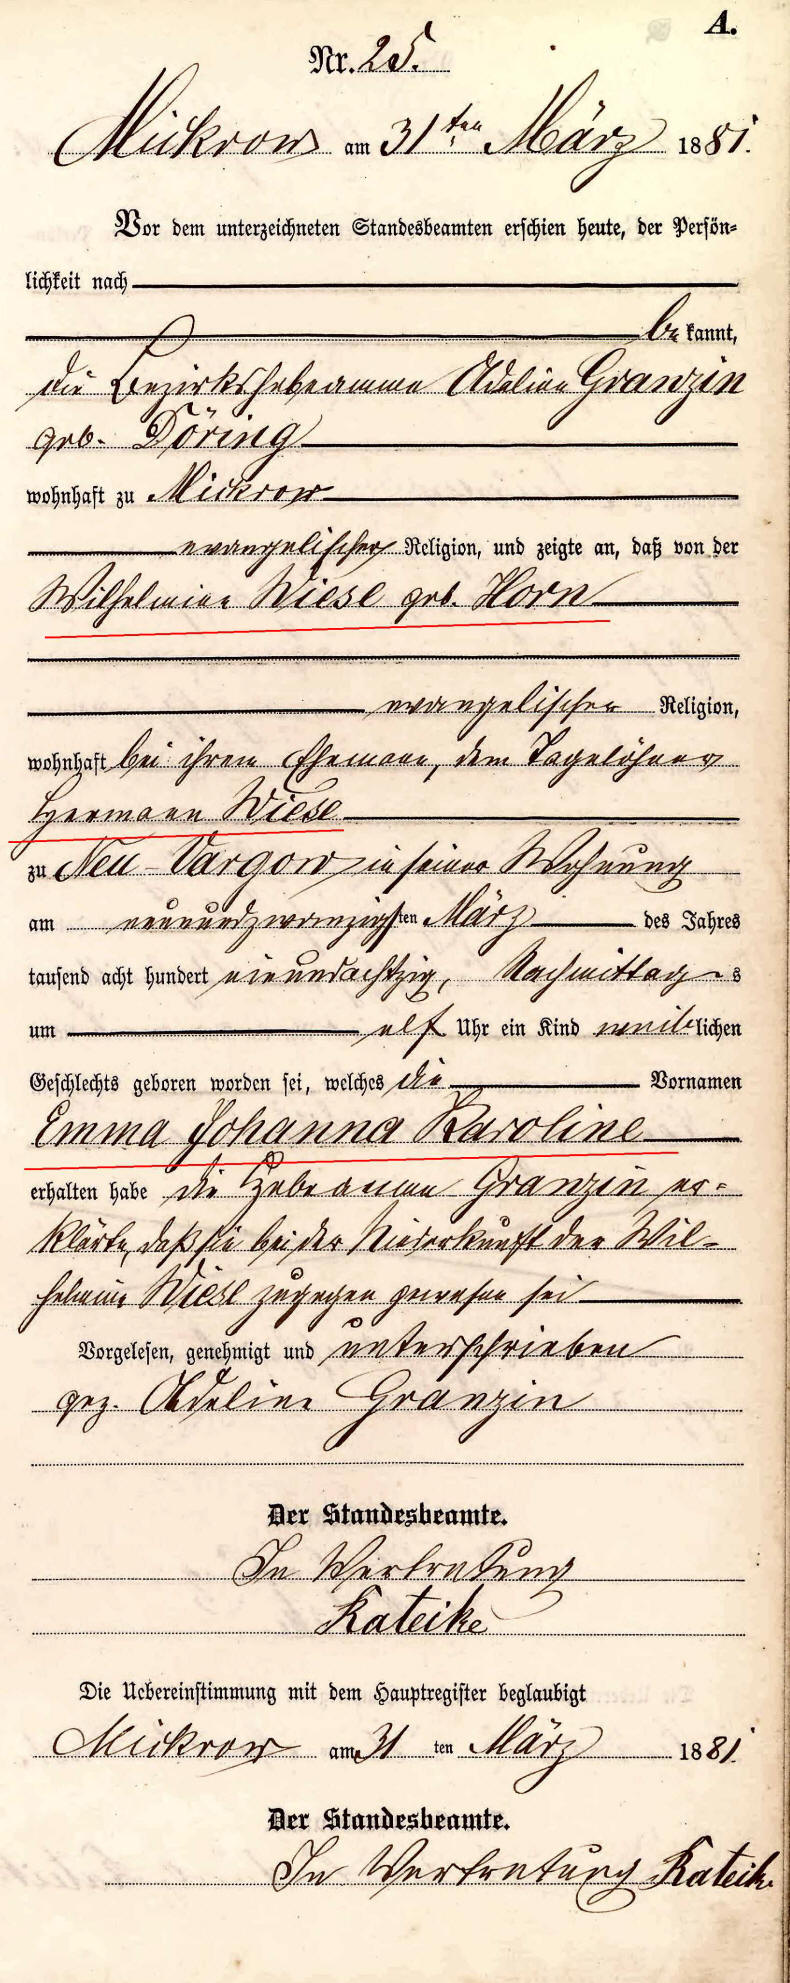 A.
Nr. 25.
Mickrow am 31ten März 1881.
Vor dem unterzeichneten Standesbeamten erschien heute, der Persön-
lichkeit nach
be kannt,
die Bezirkshebeamme Adeline Granzin
geb. Döring
wohnhaft zu Mickrow
evangelischer Religion, und zeigte an, daß von der
Wilhelmine Wiese geb. Horn
evangelischer Religion,
wohnhaft bei ihrem Ehemann, dem Tagelöhner
Hermann Wiese
zu Neu-Vargow in seiner Wohnung
am neunundzwanzigsten März des Jahres
tausend acht hundert einundachtzig, Nachmittag s
um elf Uhr ein Kind weiblichen
Geschlechts geboren worden sei, welches die Vornamen
Emma Johanna Karoline
erhalten habe die Hebeamme Granzin er-
klärte, daß sie bei der Niederkunft der Wil-
helmine Wiese zugegen gewesen sei
Vorgelesen, genehmigt und unterschrieben
gez. Adeline Granzin
Der Standesbeamte.
In Vertretung
Kateike
Die Uebereinstimmung mit dem Hauptregister beglaubigt
Mickrow am 31 ten März 1881.
Der Standesbeamte.
In Vertretung Kateike